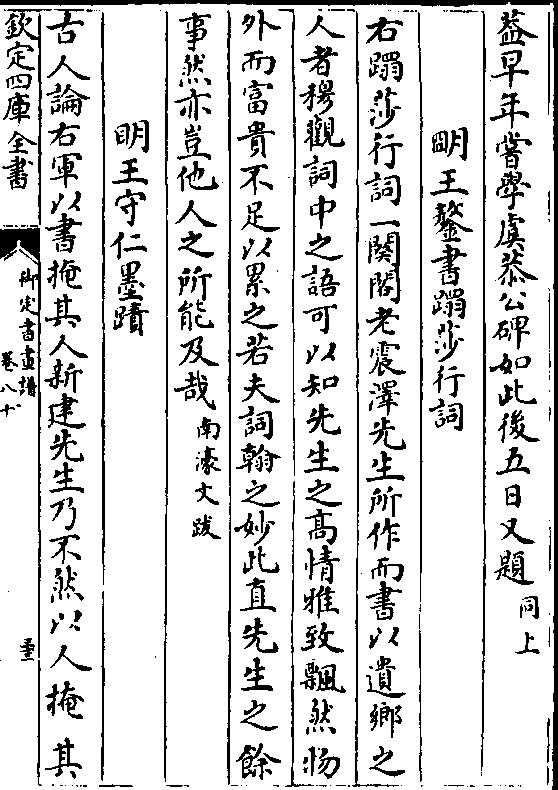 葢早年嘗學虞恭公碑如此後五日又題同上
明王鏊書蹋莎行詞
右蹋莎行詞一闋閣老震澤先生所作而書以遺鄉之
人者穆觀詞中之語可以知先生之髙情雅致飄然物
外而富貴不足以累之若夫詞翰之妙此直先生之餘
事然亦豈他人之所能及哉南濠文跋
明王守仁墨蹟
古人論右軍以書掩其人新建先生乃不然以人掩其
欽定四庫全書
御定書畫譜
卷八十